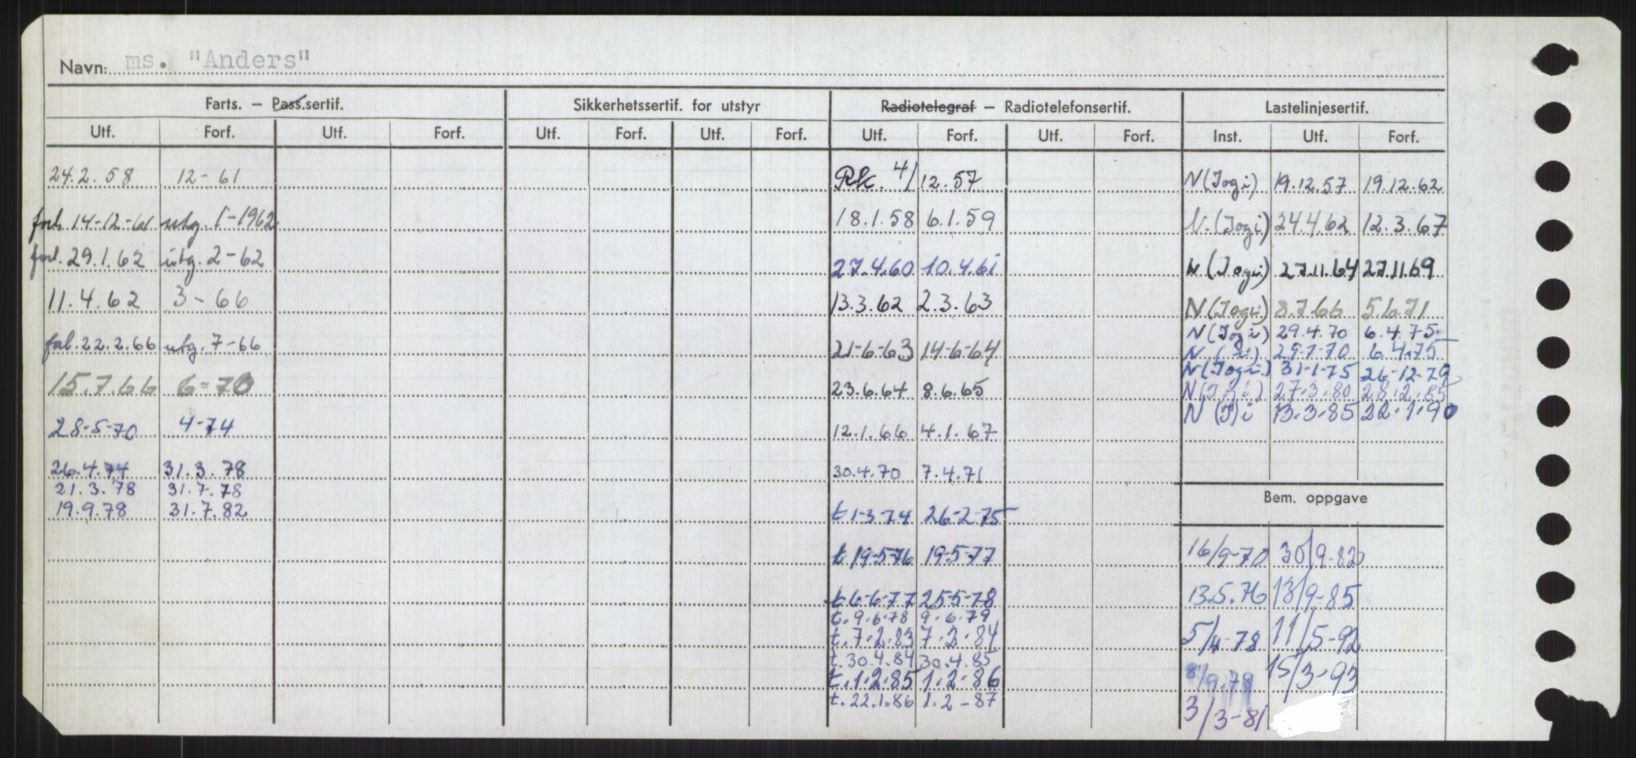 Navn: ms. "Anders"
Farts. — Pass.sertif. Sikkerhetssertif. for utstyr Radiotelegraf — Radiotelefonsertif. Lastelinjesertif.
Utf. Forf. Utf. Forf. Utf. Forf. Utf. Forf. Utf. Forf. Utf. Forf. Inst. Utf. Forf.
24.2.58 12-61
forl. 14-12-61 utg. 1-1962
forl. 29.1.62 utg. 2-62
11.4.62 3-66
22.2.66 utg. 7-66
15.7.66 6-70
28-5-70 4-74
26.4.74 31.3.78
21.3.78 31.7.78
19.9.78 31.7.82
Rk. 4/12.57
18.1.58 6.1.59
27.4.60 10.4.61
13.3.62 2.3.63
21-6-63 14-6-64
23.6.64 8.6.65
12.1.66 4.1.67
30.4.70 7.4.71
t 1-3-74 26-2-75
t 19-5-76 19-5-77
t 6-6-77 25-5-78
t. 9.6.78 9.6.79
t. 7.2.83 7.2.84
t. 30.4.84 30.4.85
t. 1.2.85 1.2.86
t. 22.1.86 1.2-87
N (Jogi) 19.12.57 19.12.62
N. (Jogi) 24.4.62 12.3.67
N (Jogi) 27.11.64 27.11.69
N (Jogi) 8.7.66 5.6.71
N (Jogi) 29.4.70 6.4.75
N 29-7-70 6.4.75
N (Jogi) 31-1-75 26-12-79
N 27.3.80 28.12.85
N (J)i 13.3.85 22.1.90
Bem. oppgave
16/9-70 30/9-82
13.5.76 13/9-85
5/4-78 11/5-92
8/9.78 15/3-93
3/3-81